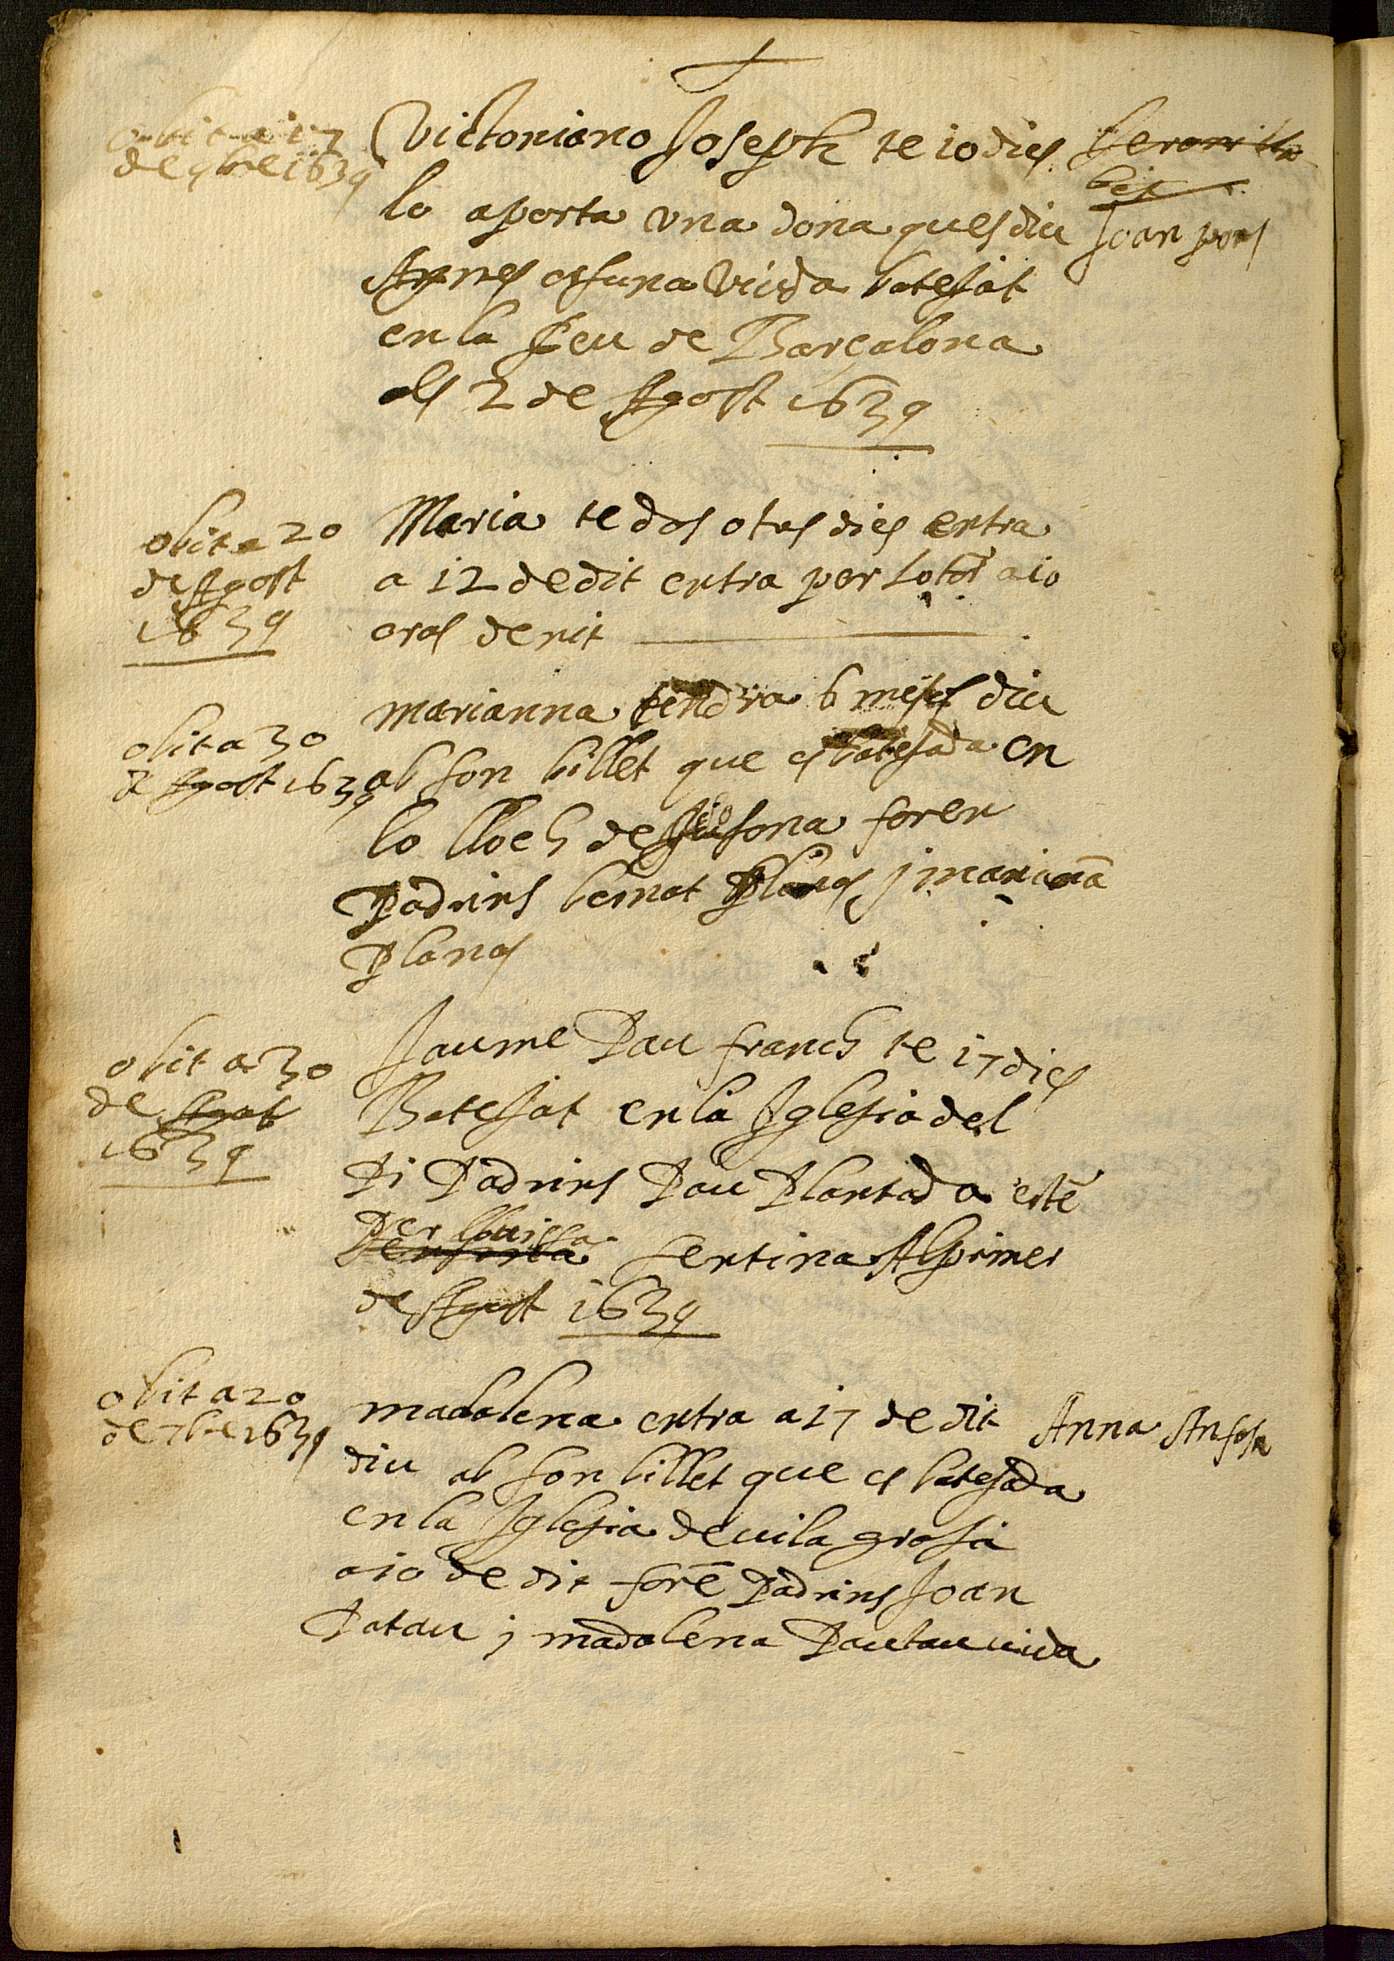 obit a 17
de 9bre 1639
Victoriano Joseph te 10 dies
lo aporta una dona ques diu
Agnes osuna viuda batejat
en la Seu de Barçalona
als 2 de Agost 1639
Joan pons
obit a 20
de Agost
1639
Maria te dos o tres dies entra
a 12 de dit entra per lo torn a 10
oras de nit
obit a 30
de Agost 1639
marianna tendra 6 mesos diu
ab son billet que es batejada en
lo lloch de foren
Padrins bernat Planas j mariana
Planas
obit a 30
de Agost
1639
Jaume Pau franch te 17 dies
Batejat en la Iglesia del
Pi Padrins Pau Plantada este
Per lluissa
sentina Al primer
de Agost 1639
obit a 20
de 7bre 1639
madalena entra a 17 de dit
Anna
diu ab son billet que es batejada
en la Iglesia de vila grasa
a 10 de dit forē Padrins Joan
Patau j madalena Pautau viuda